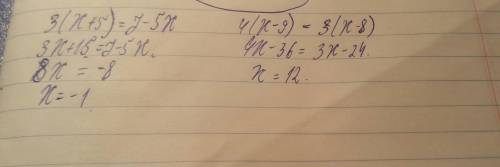 3(x+5)=7-5x
3x+15=7-5x.
8x = -8
x=-1
4(x-9) = 3(x-8)
4x-36 = 3x-24.
x = 12.